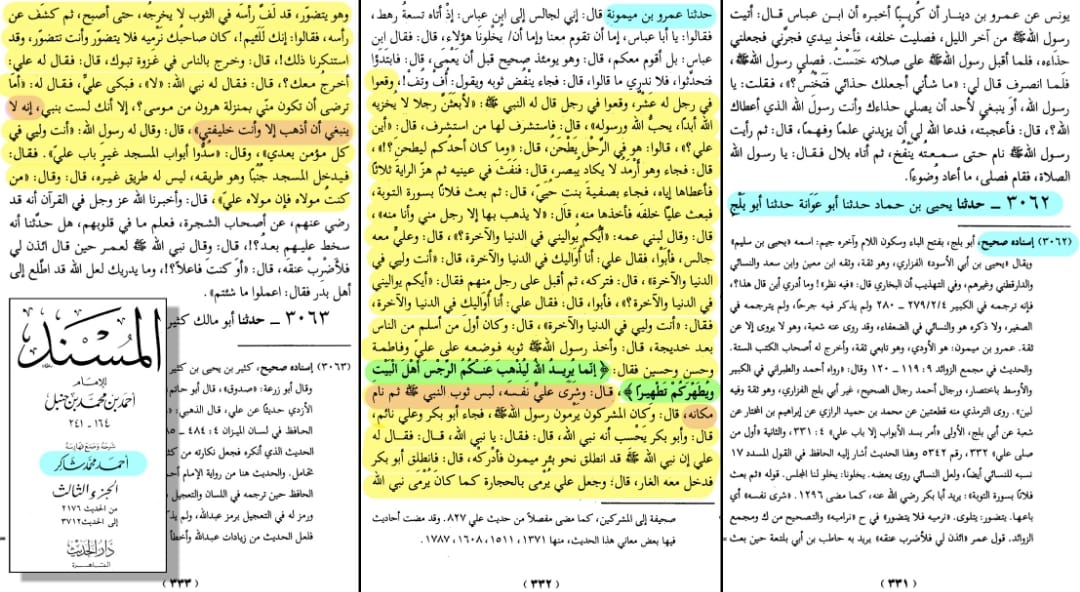 يونس عن عمرو بن دينار أن كُريباً أخبره أن ابن عباس قال: أتيت
رسول الله ﷺ من آخر الليل، فصليت خلفه، فأخذ بيدي فجرّني فجعلني
حذاءه، فلما أقبل رسول الله ﷺ على صلاته خنَستُ، فصلى رسول الله ﷺ،
فلما انصرف قال لي: «ما شأني أجعلك حذائي فتَخْنُس؟»، فقلت: يا
رسول الله، أوَ ينبغي لأحد أن يصلي حذاءك وأنت رسول الله الذي أعطاك
الله؟، قال: فأعجبته، فدعا الله لي أن يزيدني علماً وفهماً، قال: ثم رأيت
رسول الله ﷺ نام حتى سمعته ينفُخ، ثم أتاه بلال فقال: يا رسول الله
الصلاة، فقام فصلى، ما أعاد وضوءاً.
٣٠٦٢ ــ حدثنا يحيى بن حماد حدثنا أبو عَوَانة حدثنا أبو بَلْج
(٣٠٦٢) إسناده صحيح، أبو بلج، بفتح الباء وسكون اللام وآخره جيم: اسمه «يحيى بن سليم»
ويقال «يحيى بن أبي الأسود» الفزاري، وهو ثقة، وثقه ابن معين وابن سعد والنسائي
والدارقطني وغيرهم، وفي التهذيب أن البخاري قال: «فيه نظر»! وما أدري أين قال هذا؟،
فإنه ترجمه في الكبير ٢٧٩/٢/٤ ــ ٢٨٠ ولم يذكر فيه جرحاً، ولم يترجمه في
الصغير، ولا ذكره هو والنسائي في الضعفاء، وقد روى عنه شعبة، وهو لا يروي إلا عن
ثقة. عمرو بن ميمون: هو الأودي، وهو تابعي ثقة، وأخرج له أصحاب الكتب الستة.
والحديث في مجمع الزوائد ٩: ١١٩ ــ ١٢٠ وقال: «رواه أحمد والطبراني في الكبير
والأوسط باختصار، ورجال أحمد رجال الصحيح، غير أبي بلج الفزاري، وهو ثقة وفيه
لين». وروى الترمذي منه قطعتين عن محمد بن حميد الرازي عن إبراهيم بن المختار عن
شعبة عن أبي بلج، الأولى «أمر بسد الأبواب إلا باب علي» ٤: ٣٣١، والثانية «أول من
صلى علي» ٣٣٢، رقم ٥٣٤٢ وهذا الحديث أشار إليه الحافظ في القول المسدد ١٧
نسبه للنسائي أيضاً، ولعل النسائي روى بعضه. يخلونا: يخلو لنا المجلس. قوله «ثم بعث
فلاناً بسورة التوبة»: يريد أبا بكر رضي الله عنه، كما مضى ١٢٩٦. «شرى نفسه» أي
باعها. يتضور: يتلوى. «نرميه فلا يتضور» في ح «نراميه» والتصحيح من ك ومجمع
الزوائد. قول عمر «ائذن لي فلأضرب عنقه» يريد به حاطب بن أبي بلتعة حين بعث =
(٣٣١)
حدثنا عمرو بن ميمونة قال: إني لجالس إلى ابن عباس: إذ أتاه تسعةُ رهط،
فقالوا: يا أبا عباس، إما أن تقوم معنا وإما أن/ يخْلونا هؤلاء، قال: فقال ابن
عباس: بل أقوم معكم، قال: وهو يومئذ صحيح قبل أن يَعْمَى، قال: فابتدَؤا
فتحدثوا، فلا ندري ما قالوا، قال: فجاء ينْفُض ثوبه ويقول: أُف وتُفْ! وقعوا
في رجل له عَشْر، وقعوا في رجل قال له النبي ﷺ: «لأبعثنّ رجلا لا يُخزيه
الله أبداً، يحبّ الله ورسوله»، قال: فاستشرف لها من استشرف، قال: «أين
علي؟»، قالوا: هو في الرَّحْل يَطْحَنُ، قال: «وما كان أحدكم ليطحن؟!»،
قال: فجاء وهو أرْمَدُ لا يكاد يبصر، قال: فنَفَثَ في عينيه ثم هزّ الراية ثلاثاً
فأعطاها إياه، فجاء بصفية بنت حُيَيّ، قال: ثم بعث فلاناً بسورة التوبة،
فبعث عليّا خلفه فأخذها منه، قال: «لا يذهب بها إلا رجل مني وأنا منه»،
قال: وقال لبني عمه: «أيُّكم يُواليني في الدنيا والآخرة؟»، قال: وعليّ معه
جالس، فأبَوْا، فقال علي: أنا أواليك في الدنيا والآخرة، قال: «أنت وليي في
الدنيا والآخرة»، قال: فتركه، ثم أقبل على رجل منهم فقال: «أيكم يواليني
في الدنيا والآخرة؟»، فأبوا، قال: فقال علي: أنا أواليك في الدنيا والآخرة،
فقال: «أنت وليي في الدنيا والآخرة»، قال: وكان أول من أسلم من الناس
بعد خديجة، قال: وأخذ رسول الله ﷺ ثوبه فوضعه على عليّ وفاطمة
وحسن وحسين فقال: ﴿ إنَّما يريدُ اللهُ ليُذهبَ عَنكُمُ الرِّجْسَ أهْلَ الْبَيْت
ويُطَهِّرَكُمْ تطهيراً ﴾، قال: وشَرَى عليّ نفسَه، لبس ثوب النبي ﷺ ثم نام
مكانه، قال: وكان المشركون يرْمون رسول الله ﷺ، فجاء أبو بكر وعلي نائم،
قال: وأبو بكر يَحْسب أنه نبي الله، قال: فقال: يا نبي الله، قال: فقال له
علي إن نبي الله ﷺ قد انطلق نحو بئر ميمون فأدْركْه، قال: فانطلق أبو بكر
فدخل معه الغار، قال؛ وجعل علي يُرْمى بالحجارة كما كان يُرْمَى نبي الله
صحيفة إلى المشركين، كما مضى مفصلاً من حديث علي ٨٢٧. وقد مضت أحاديث
فيها بعض معاني هذا الحديث، منها ١٣٧١، ١٥١١، ١٦٠٨، ١٧٨٧.
(٣٣٢)
وهو يتضوّر، قد لَفَّ رأسه في الثوب لا يخرجُه، حتى أصبح، ثم كشَف عن
رأسه، فقالوا: إنك لَلَئيم!، كان صاحبك نَرْميه فلا يتضوّر وأنت تتضوّر، وقد
استنكرنا ذلك!، قال: وخرج بالناس في غزوة تبوك، قال: فقال له علي:
أخرجُ معك؟، قال: فقال له نبي الله: «لا»، فبكى عليّ، فقال له: «أمَا
ترضى أن تكون منّي بمنزلة هرون من موسى؟، إلا أنك لست بنبي، إنه لا
ينبغي أن أذهب إلا وأنت خليفتي»، قال: وقال له رسول الله: «أنت وليي في
كل مؤمن بعدي»، وقال: «سُدُّوا أبواب المسجد غيرَ باب عليّ». فقال:
فيدخل المسجد جُنُباً وهو طريقه، ليس له طريق غيره، قال: وقال: «من
كنتُ مولاه فإن مولاه عليّ»، قال: وأخبرنا الله عز وجل في القرآن أنه قد
رضي عنهم، عن أصحاب الشجرة، فعلم ما في قلوبهم، هل حدّثنا أنه
سخط عليهم بعد؟!، قال: وقال نبي الله لعمر حين قال ائذن لي
فلأضْرب عنقه، قال: «أوَ كنتَ فاعلاً؟!، وما يدريك لعل الله قد اطَّلع إلى
أهل بدر فقال: اعملوا ما شئتم».
٣٠٦٣ ــ حدثنا أبو مالك كثير
(٣٠٦٣) إسناده صحيح، كثير بن يحيى بن كثير
وقال أبو زرعة: «صدوق»، قال أبو حاتم
الأزدي حديثاً عن علي، قال الذهبي:
الحافظ في لسان الميزان ٤: ٤٨٤ ــ
الحديث الذي أنكره فجعل نكارته من
يتحامل. والحديث هنا من رواية الإمام أحمد
الحافظ حين ترجمه في اللسان والتعجيل
ورمز له في التعجيل برمز عبدالله، ولم
فلعل الحديث من زيادات عبدالله وأخطأ
(٣٣٣)
المُسْنَد
للإمام
أحمد بن محمد بن حنبل
١٦٤ ــ ٢٤١
شرحه وصنع فهارسه
أحمد محمد شاكر
الجزء الثالث
من الحديث ٢١٧٦
إلى الحديث ٣٧١٢
دار الحديث
القاهرة